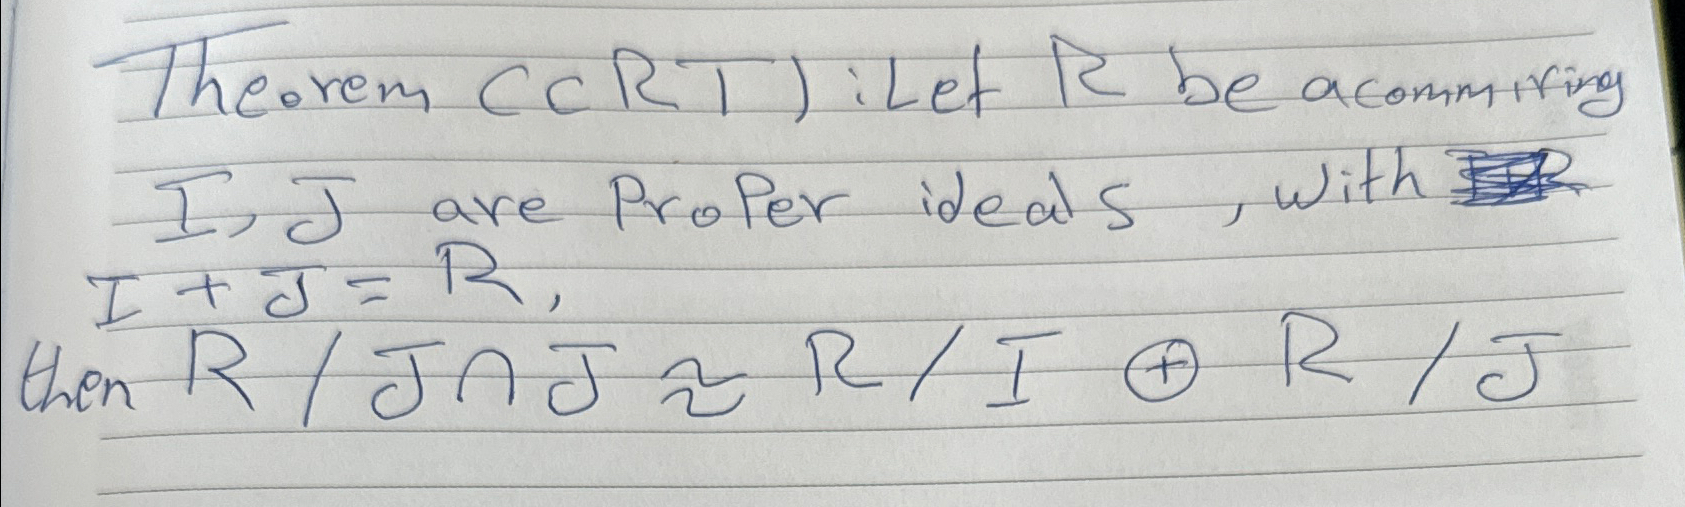 Theorem (CRT) : Let R be a comm ring
I, J are Proper ideals, with
I + J = R,
then R / J ∩ J ≈ R / I ⊕ R / J